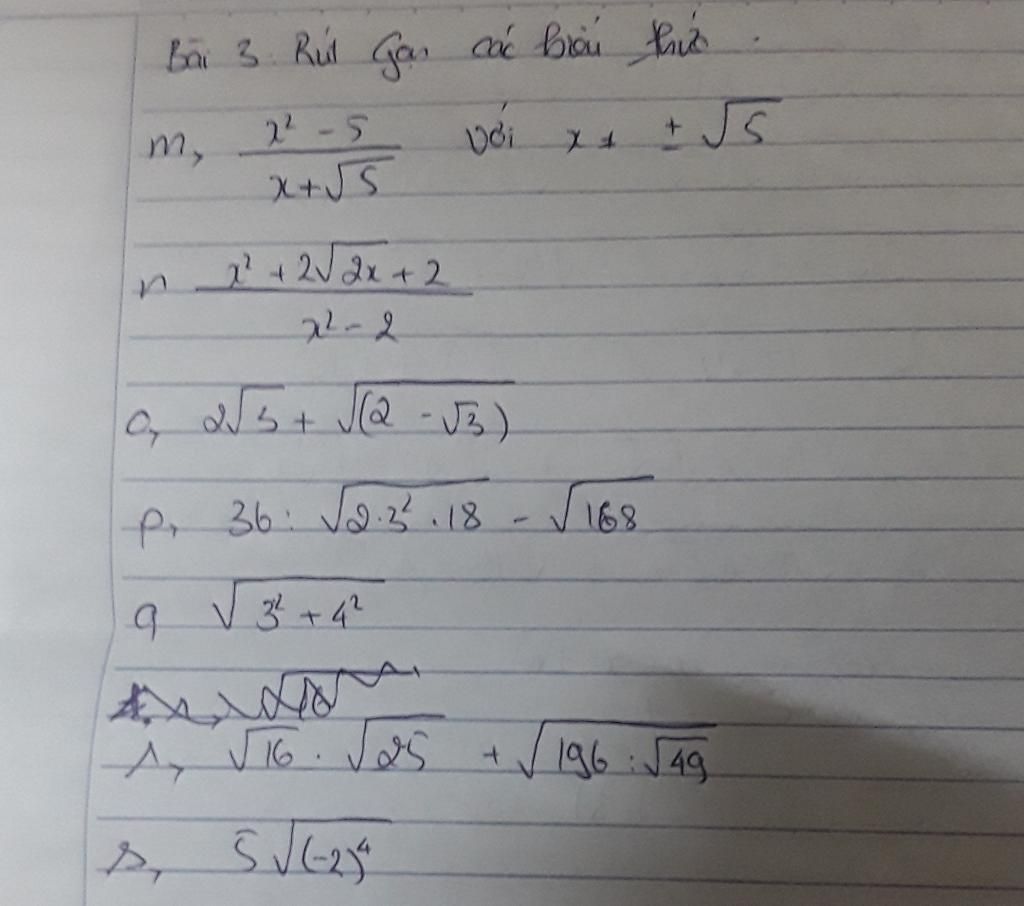 Bài 3. Rút gọn các biểu thức.
m, (x² - 5)/(x + √5) với x ≠ ±√5
n (x² + 2√(2x) + 2)/(x² - 2)
o, 2√3 + √((2 - √3))
p, 36 : √(2.3².18) - √168
q √(3² + 4²)
r, √16 . √25 + √(196 : √49)
s, 5√((-2)⁴)